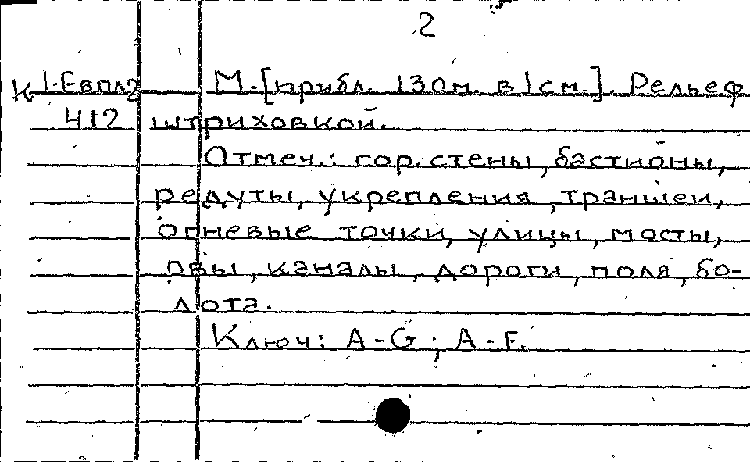 2
К 1-Евпл2 М.[прибл. 130м. в 1см.]. Рельеф
412 штриховкой.
Отмеч.: гор. стены, бастионы,
редуты, укрепления, траншеи,
огневые точки, улицы, мосты,
рвы, каналы, дороги, поля, бо-
лота.
Ключ: A-G; A-F.